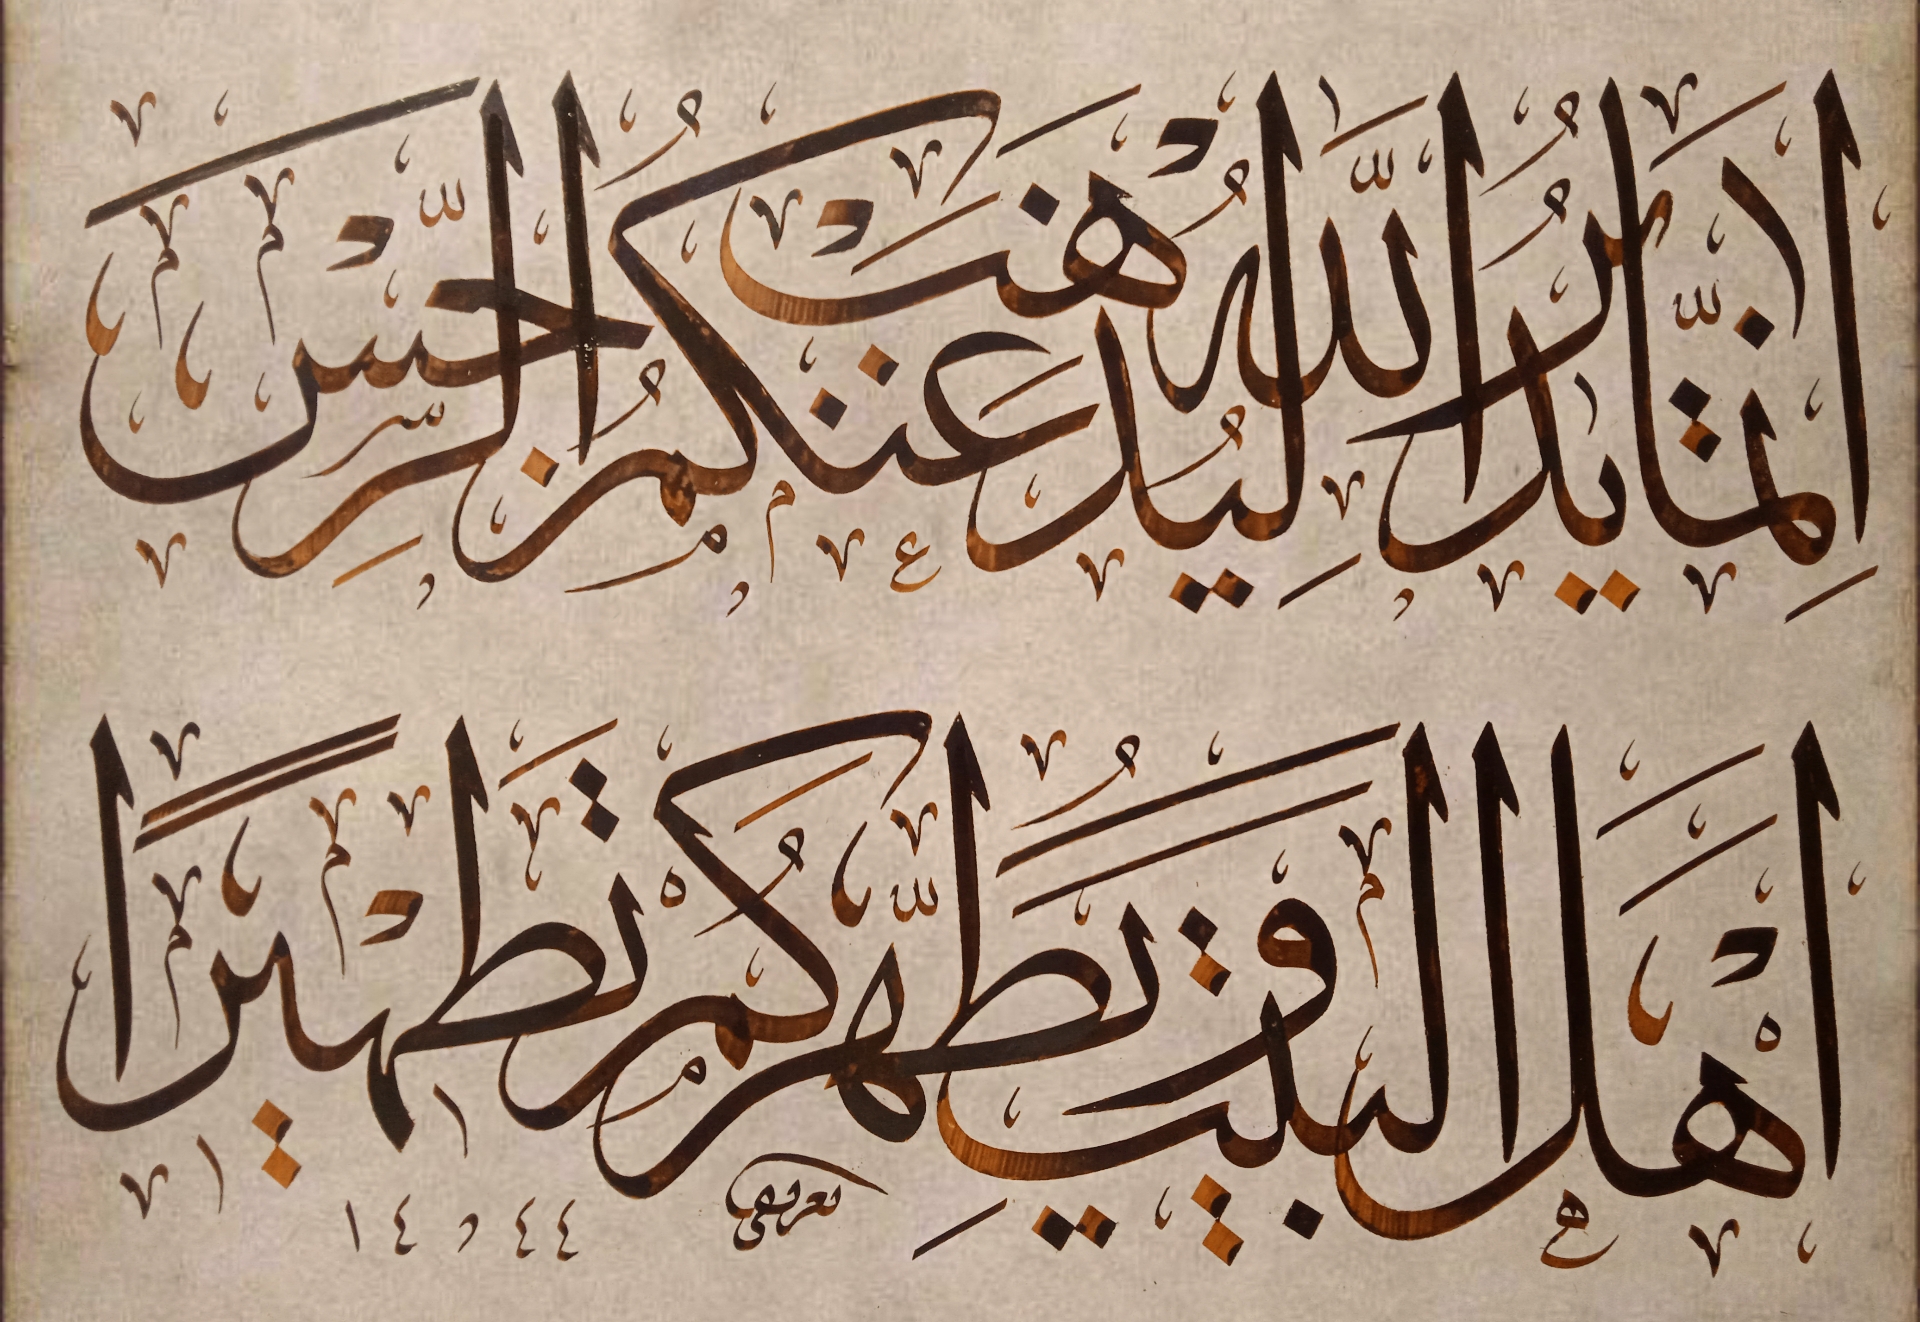 اِنَّمَا يُرِيدُ اللّٰهُ لِيُذْهِبَ عَنْكُمُ الرِّجْسَ
اَهْلَ الْبَيْتِ وَيُطَهِّرَكُمْ تَطْهِيرًا